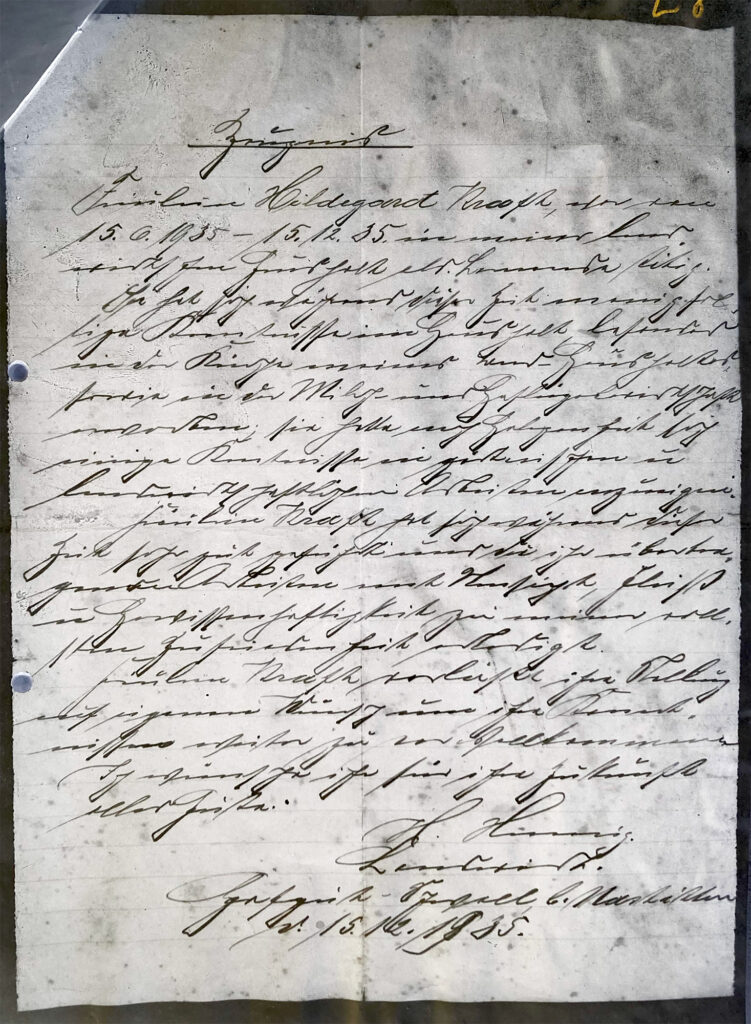 28
Zeugnis
Fräulein Hildegard Kraft, war vom
15. 6. 1935 – 15. 12. 35. in meiner land
Haushalt als tätig.
Sie hat sich während dieser Zeit mannigfal-
tige Kentnisse im Haushalt besonders
in der Küche meines Haushaltes
sowie in der Milch- und Geflügelwirtschaft
erworben; sie hatte auch Gelegenheit sich
einige Kentnisse in gärtnerischen u
landwirtschaftlichen Arbeiten anzueignen.
Fräulein Kraft hat sich während dieser
Zeit sehr gut geführt und die ihr übertra-
genen Arbeiten mit Umsicht, Fleiß
u Gewissenhaftigkeit zu meiner voll-
sten Zufriedenheit erledigt.
Fräulein Kraft verläßt ihre Stellung
auf eigenen Wunsch um ihre Kennt-
nisse weiter zu vervollkommnen
Ich wünsche ihr für ihre Zukunft
alles Gute.
H.
Landwirt.
Hofgut b. Nastätten
d. 15. 12. 1935.